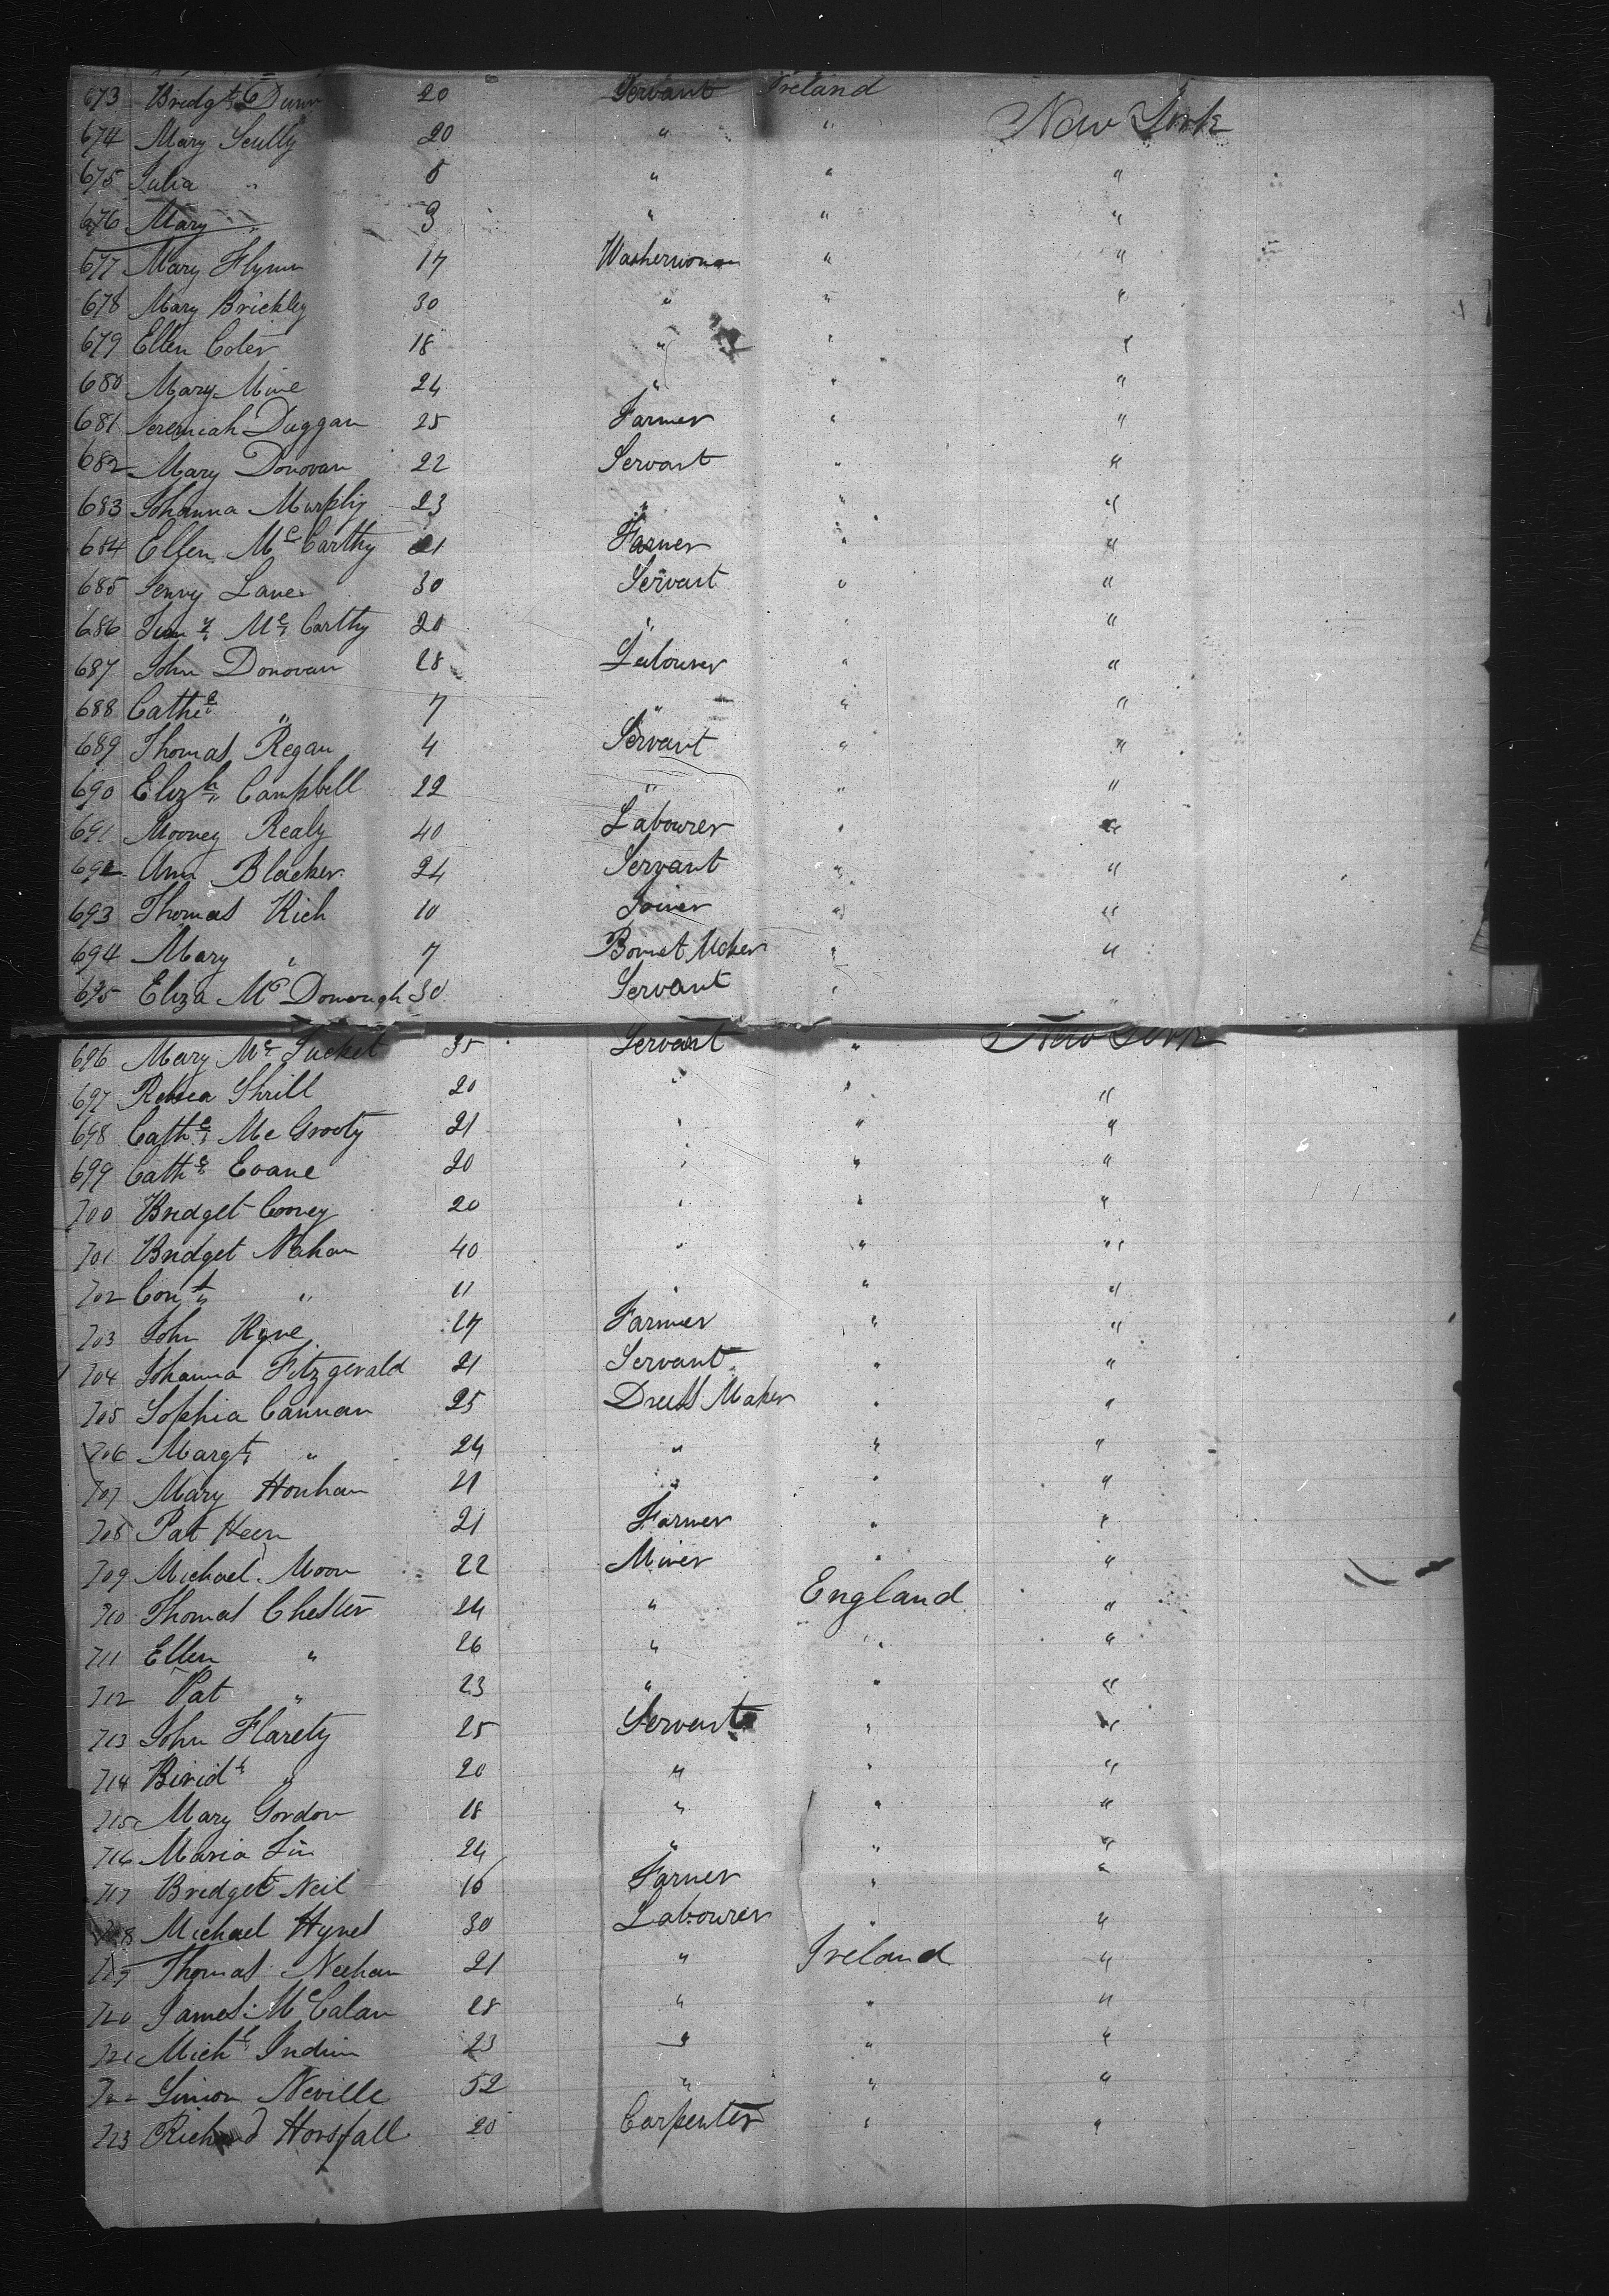 673 Bridgt Dunn 20 Servant Ireland
674 Mary Scully 20 " " New York
675 Julia " 5 " " "
676 Mary " 3 " " "
677 Mary Flynn 17 Washerwoman " "
678 Mary Brickley 30 " " "
679 Ellen Coter 18 " " "
680 Mary Mine 24 " " "
681 Jeremiah Duggan 25 Farmer " "
682 Mary Donovan 22 Servant " "
683 Johanna Murphy 23 " " "
684 Ellen Mc Carthy 21 Farmer " "
685 Jenny Lane 30 Servant " "
686 Mc Carthy 20 " " "
687 John Donovan 28 Labourer " "
688 Cathe " 7 " " "
689 Thomas Regan 4 Servant " "
690 Elizh Campbell 22 " " "
691 Mooney Realy 40 Labourer " "
692 Ann Blacker 24 Servant " "
693 Thomas Rich 10 Joiner " "
694 Mary " 7 Bonnet Maker " "
695 Eliza Mc Donough 30 Servant " "
696 Mary Mc 35 Servant " New York
697 Shrill 20 " " "
698 Cathe Mc Grooty 21 " " "
699 Cathe Evane 20 " " "
700 Bridget Cooney 20 " " "
701 Bridget Nahan 40 " " "
702 Cont " 11 " " "
703 John Ryne 27 Farmer " "
704 Johanna Fitzgerald 21 Servant " "
705 Sophia Cannan 25 Dress Maker " "
706 Margt " 24 " " "
707 Mary Honhan 21 " " "
708 Pat Keen 21 Farmer " "
709 Michael Moon 22 Miner " "
710 Thomas Chester 24 " England "
711 Ellen " 26 " " "
712 Pat " 23 " " "
713 John Flarety 25 Servant " "
714 " 20 " " "
715 Mary Gordon 18 " " "
716 Maria 24 " " "
717 Bridget Neil 16 Farmer " "
718 Michael Hynes 30 Labourer " "
719 Thomas Neehan 21 " Ireland "
720 James Mc Calan 28 " " "
721 Michl 23 " " "
722 Simon Neville 52 " " "
723 Richard Horsfall 20 Carpenter " "